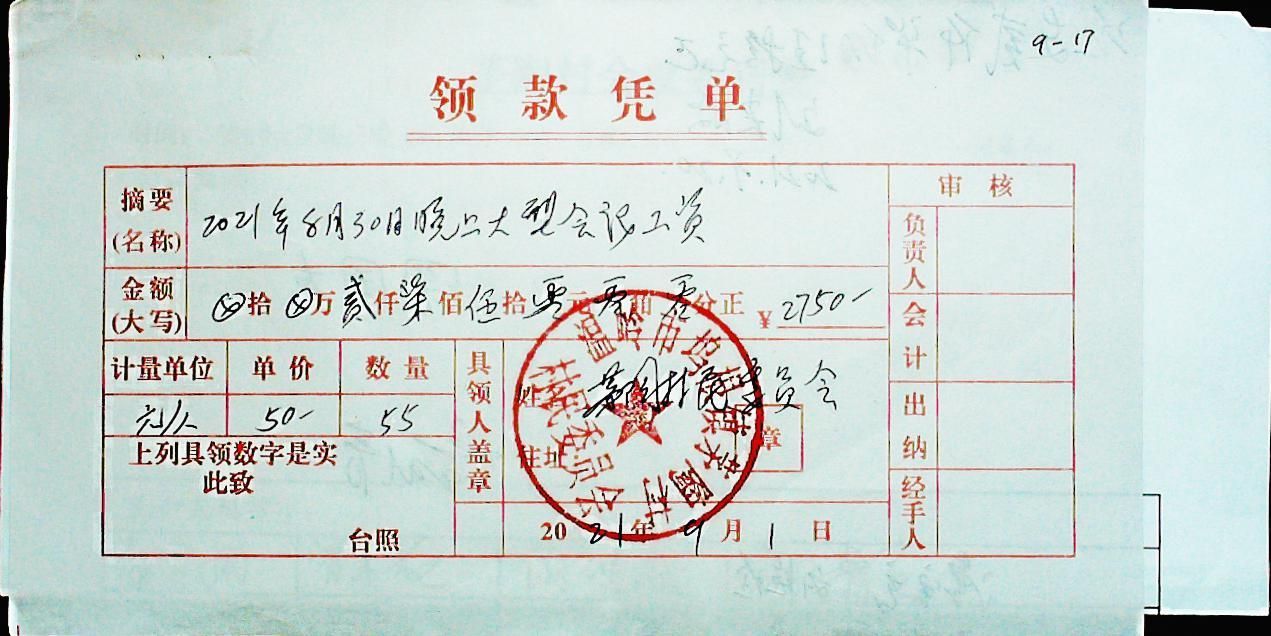 9-17
领款凭单
摘要
(名称)
2021年8月30日晚上大型会议工资
审核
负责人
金额
(大写)
⊗拾⊗万贰仟柒佰伍拾零元零角零分正 ¥2750-
会计
计量单位 单价 数量
具领人盖章
姓名
村民委员会
元/人 50- 55
出纳
上列具领数字是实
此致
住址
章
台照
2021年9月1日
经手人
温岭市坞根镇茅陶村村民委员会